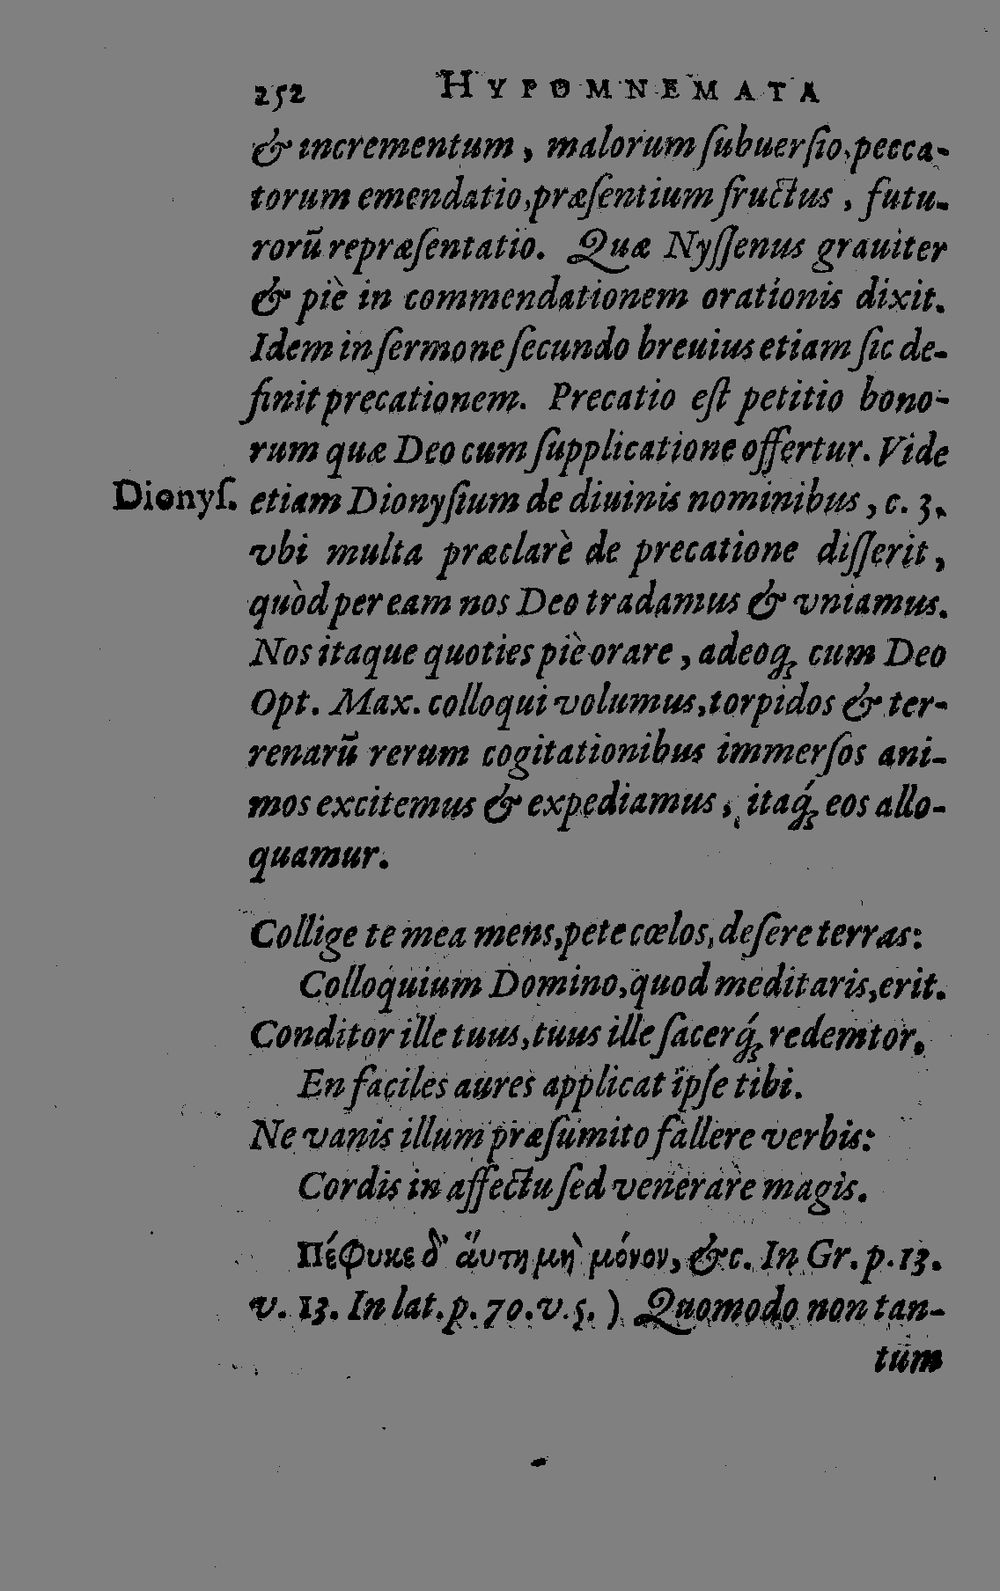 252 HYPOMNEMATA
& incrementum, malorum ſubuerſio, pecca-
torum emendatio, præſentium fructus, futu-
rorū repræſentatio. Quæ Nyſſenus grauiter
& piè in commendationem orationis dixit.
Idem in ſermone ſecundo breuius etiam ſic de-
finit precationem. Precatio eſt petitio bono-
rum quæ Deo cum ſupplicatione offertur. Vide
Dionyſ. etiam Dionyſium de diuinis nominibus, c. 3.
vbi multa præclarè de precatione diſſerit,
quòd per eam nos Deo tradamus & vniamus.
Nos itaque quoties piè orare, adeoq; cum Deo
Opt. Max. colloqui volumus, torpidos & ter-
renarū rerum cogitationibus immerſos ani-
mos excitemus & expediamus, itaq́; eos allo-
quamur.
Collige te mea mens, pete cœlos, deſere terras:
Colloquium Domino, quod meditaris, erit.
Conditor ille tuus, tuus ille ſacerq́; redemtor.
En faciles aures applicat ipſe tibi.
Ne vanis illum præſumito fallere verbis:
Cordis in affectu ſed venerare magis.
Πέφυκε δ' ἄυτη μὴ μόνον, &c. In Gr. p. 13.
v. 13. In lat. p. 70. v. 5. ) Quomodo non tan-
tum